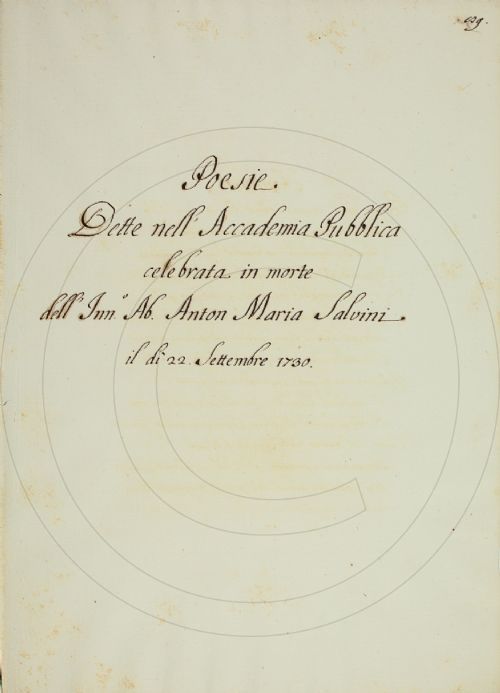 Poesie.
Dette nell' Accademia Pubblica
celebrata in morte
dell' Inn.º Ab. Anton Maria Salvini.
il dì 22. Settembre 1730.